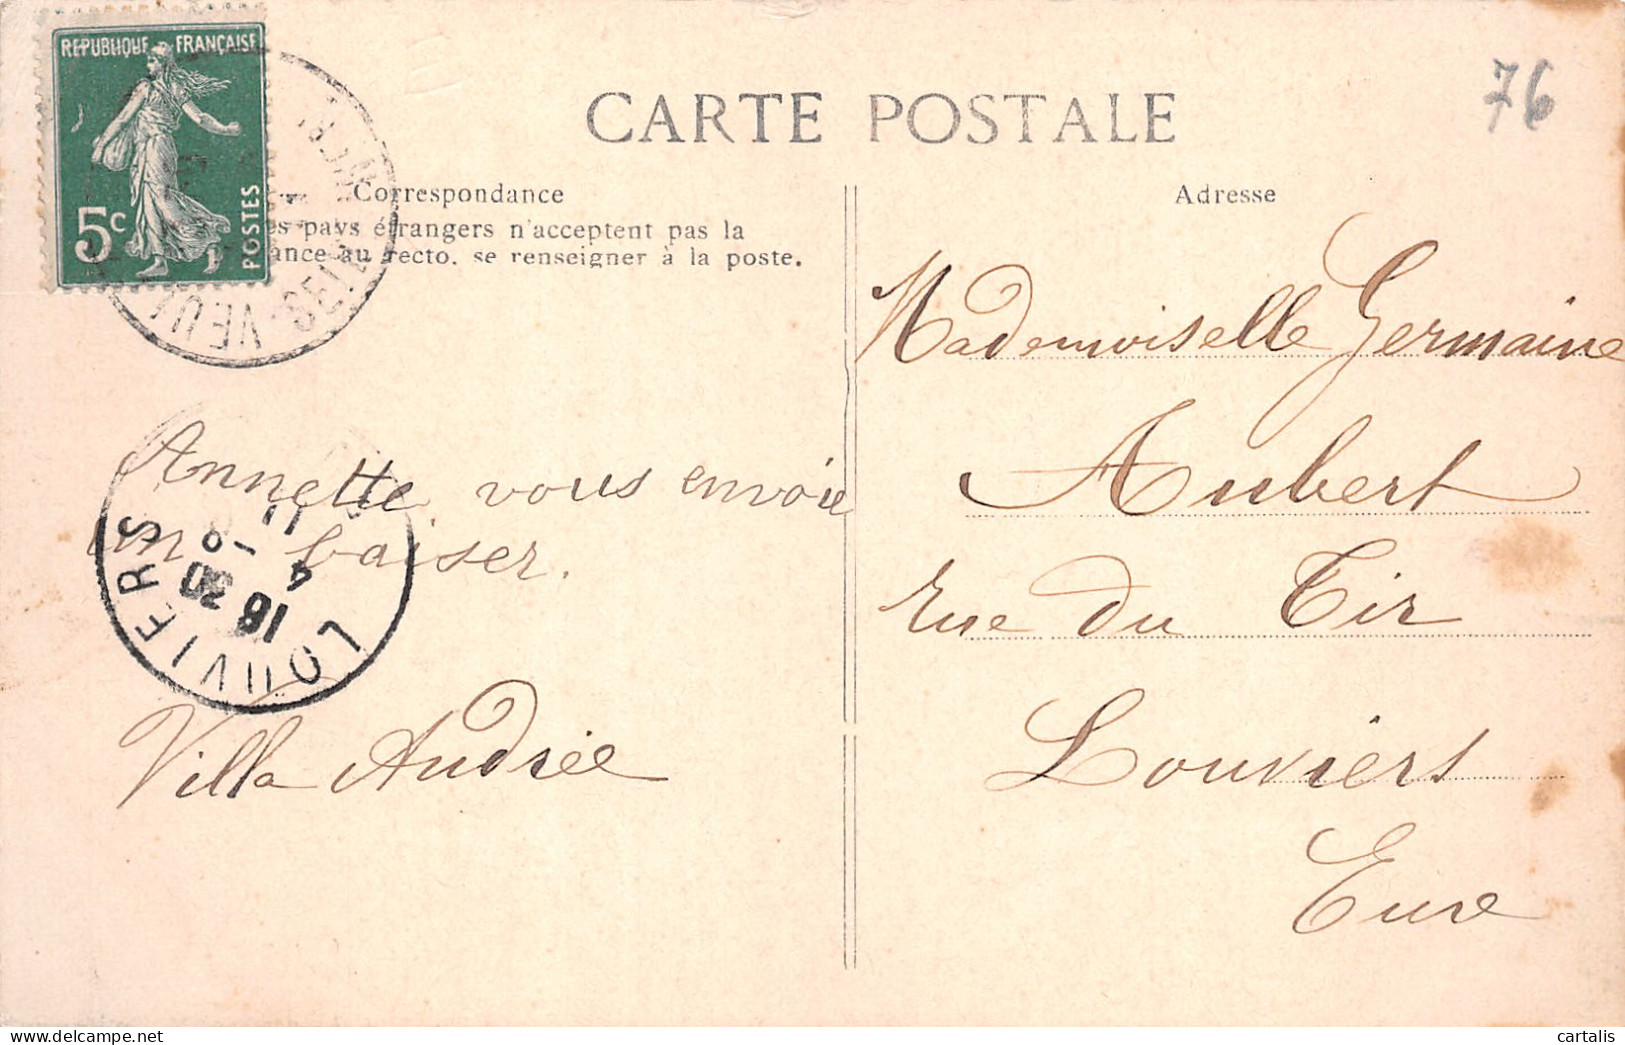 REPUBLIQUE FRANÇAISE
5c
POSTES
CARTE POSTALE
76
Correspondance
es pays étrangers n'acceptent pas la
ance au recto, se renseigner à la poste.
Adresse
VEU
Annette vous envoie
un baiser.
LOUVIERS
16 20
4
Villa Andrée
Mademoiselle Germaine
Aubert
rue du Tir
Louviers
Eure
cartalis